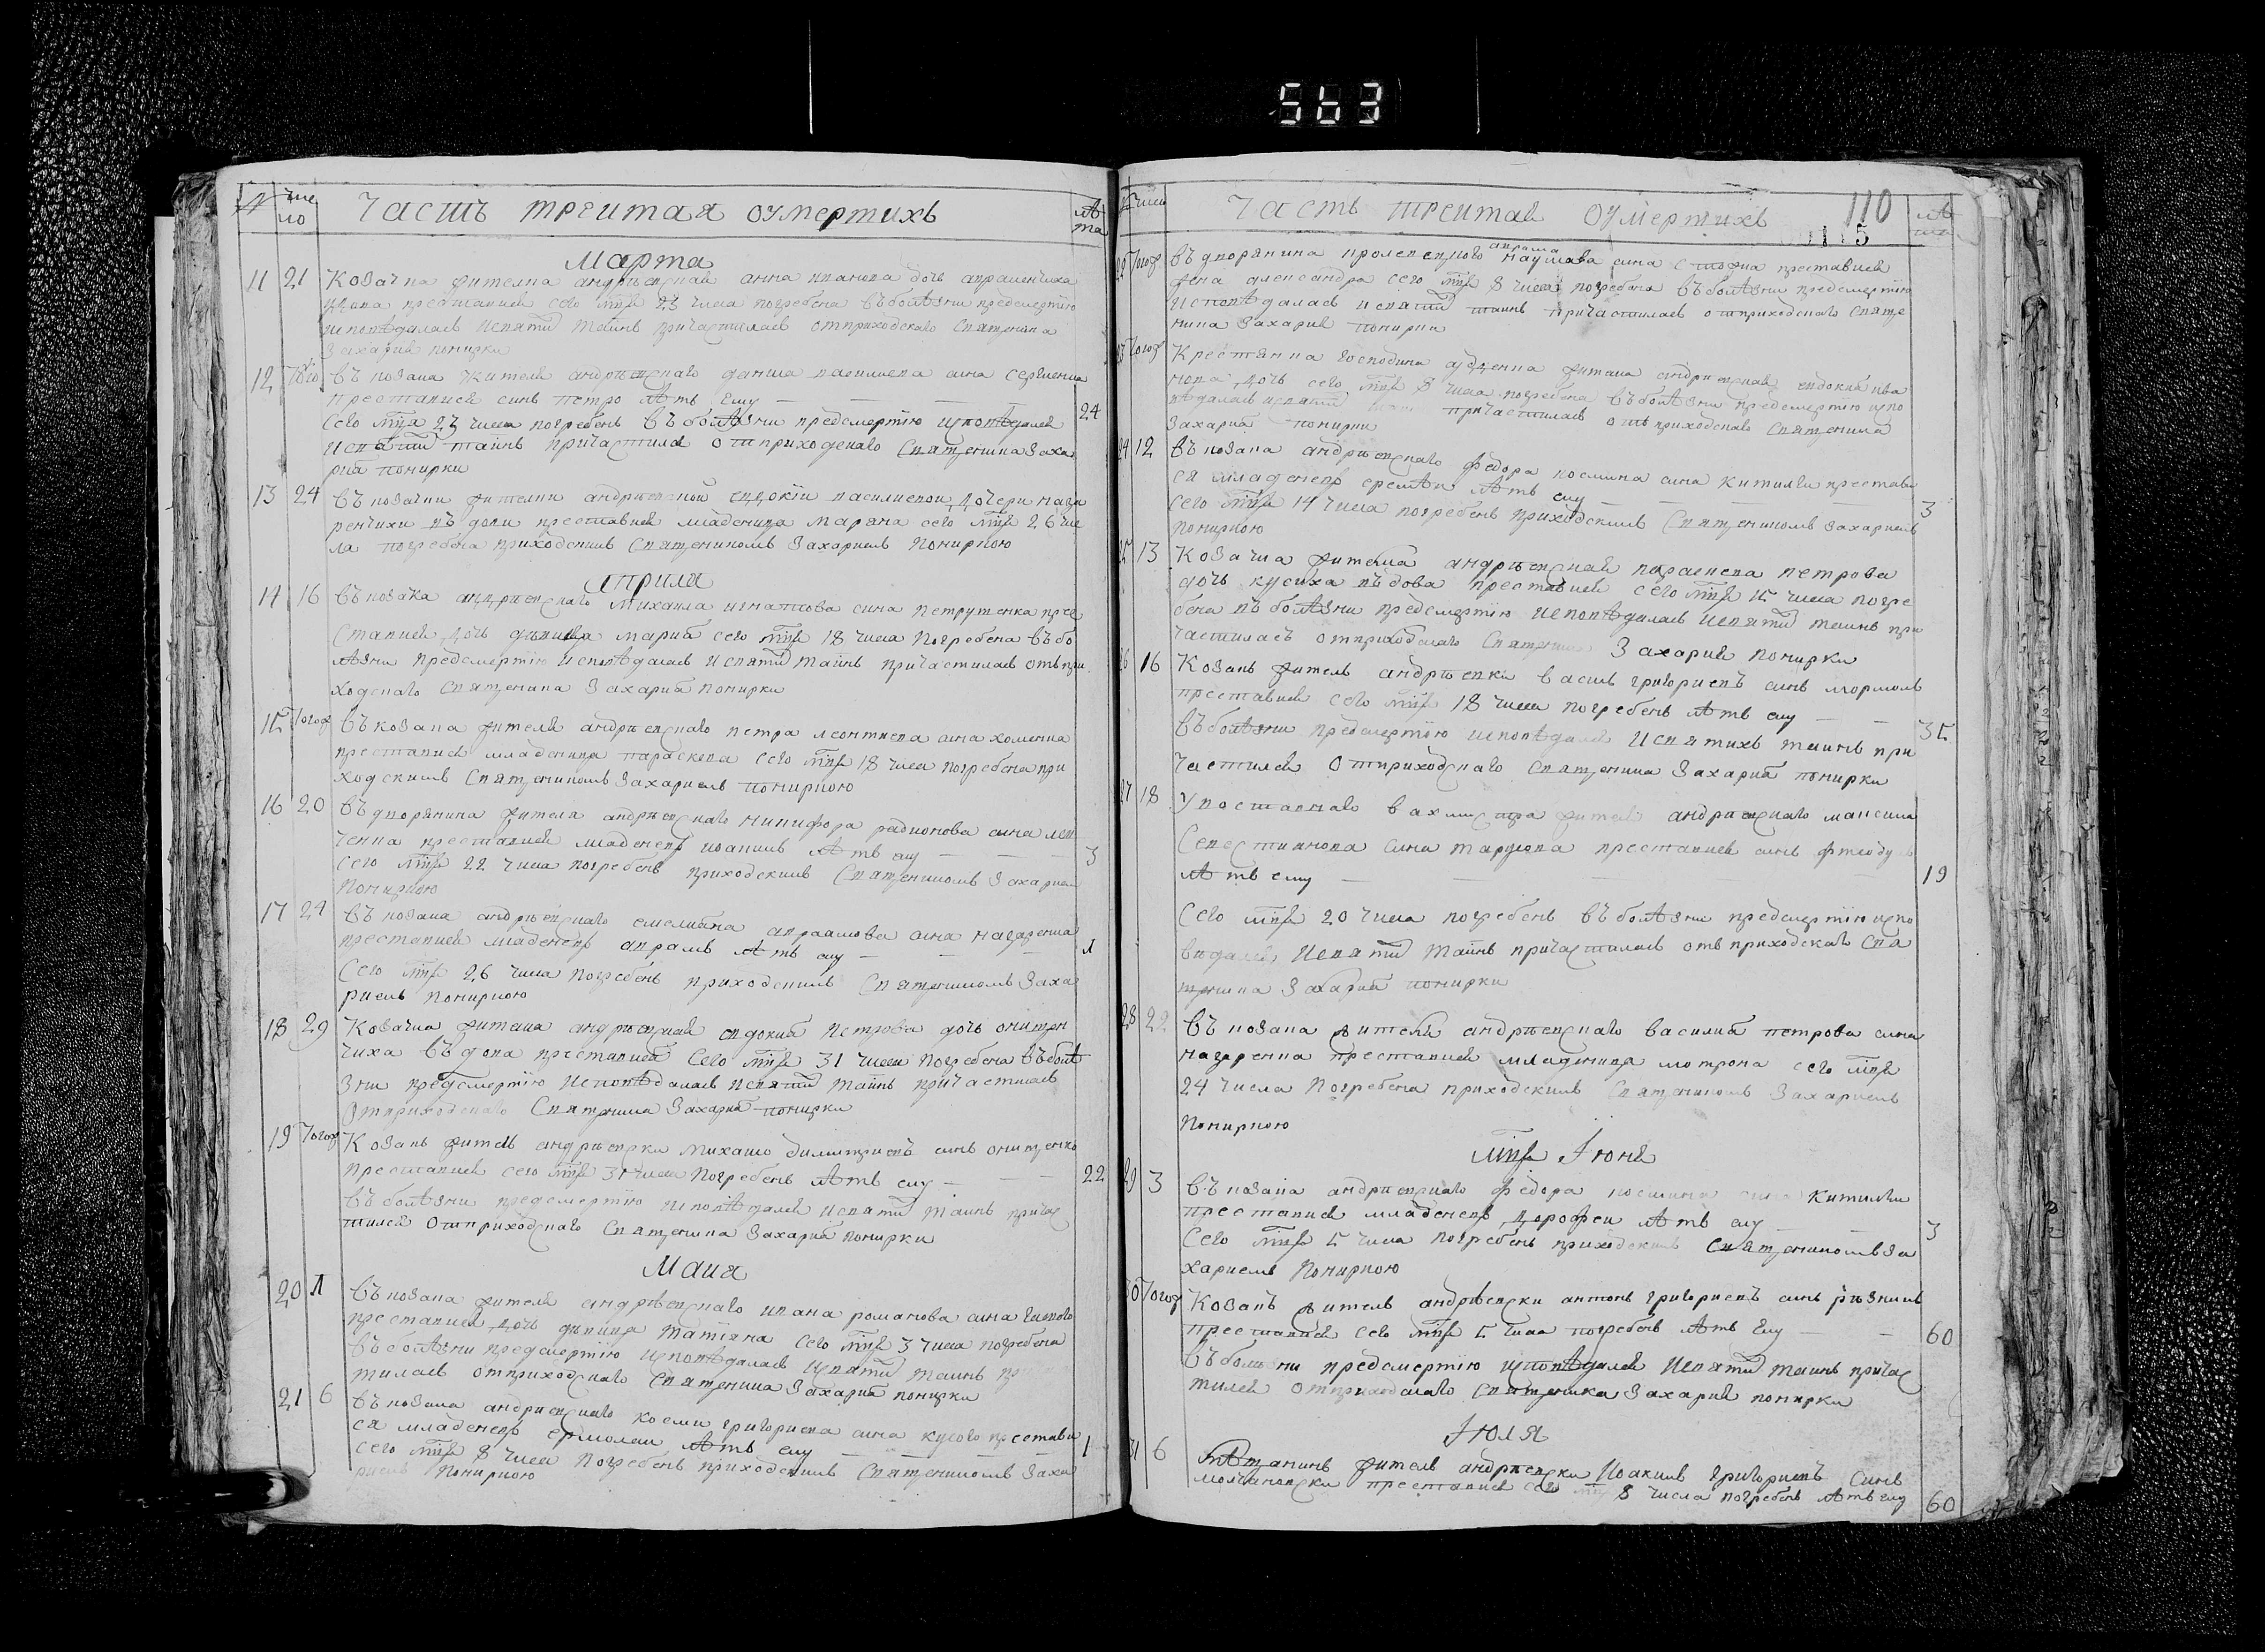 563
№ чис ло Часть третиая оумертихъ лѣ та
Марта
11 21 Козачка жителка андрѣевская анна иванова дочь
преставися сего мца 23 числа погребена въболѣзни предсмертію
исповѣдалась исвяти таинъ причастилась отприходского священика
Захария покирки
12 того въ козака жителя андрѣевского данила василиева сина сергиенка
преставися синъ петро лѣтъ ему — 24
сего мца 23 числа погребенъ въболѣзни предсмертію исповѣдался
исвяти таинъ причастился отприходского священика заха
рия покирки
13 24 въ козачки жителки андрѣевской евдокіи василиевои дочери наза
ренчихи въдови преставися младеница маряна сего мца 26 чис
ла погребена приходскимъ священикомъ Захариемъ Покиркою
априля
14 16 въ козака андрѣевского Михаила игнатова сина петрушенка пре
ставися дочь дѣвица мария сего мца 18 числа погребена въбо
лѣзни предсмертію исповѣдалась исвяти таинъ причастилась отъпри
ходского священика Захария покирки
15 того въ козака жителя андрѣевского петра леонтиева сина хоменка
преставися младеница параскева сего мца 18 числа погребена при
ходскимъ священикомъ Захариемъ покиркою
16 20 въ дворянина жителя андрѣевского никифора радионова сина лев
ченка преставися младенецъ иоанимъ лѣтъ ему — 3
сего мца 22 числа погребенъ приходскимъ священикомъ Захарием
Покиркою
17 24 въ козака андрѣевского емелияна авраамова сина назаренка
преставися младенецъ аврамъ лѣтъ ему — 1
сего мца 26 числа погребенъ приходскимъ священикомъ Заха
риемъ покиркою
18 29 Козачка жителка андрѣевская евдокия петрова дочь онищен
чиха въдова преставися сего мца 31 числа погребена въболѣ
зни предсмертію исповѣдалась исвяти таинъ причастилась
отприходского священика Захария покирки
19 того Козакъ житель андрѣевски михаило димитриевъ синъ онищенко
преставися сего мца 31 числа погребенъ лѣтъ ему — 22
въ болѣзни предсмертію исповѣдался исвяти таинъ причас
тился отприходского священика Захария покирки
Маия
20 1 въ козака жителя андрѣевского ивана романова сина
преставися дочь дѣвица татіяна сего мца 3 числа погребена
въболѣзни предсмертію исповѣдалась исвяти таинъ
тилась отприходского священика Захария покирки
21 6 въ козака андрѣевского косми григориева сина кусого престави
ся младенецъ ермолаи лѣтъ ему — 1
сего мца 8 числа погребенъ приходскимъ священикомъ Заха
риемъ покиркою
№ числ Часть третиая оумертихъ лѣ та
110
115
22 того въ дворянина наумова сина преставися
жена александра сего мца 8 числа погребена въболѣзни предсмертію
исповѣдалась исвяти таинъ причастилась отприходского свяще
ника Захария покирки
23 того Крестянка господина жителка андрѣевская евдокия ива
нова дочь сего мца 8 числа погребена въболѣзни предсмертію испо
вѣдалась исвяти таинъ причастилась отъ приходского священика
Захария покирки
24 12 въ козака андрѣевского федора космина сина престави
ся младенецъ еремѣи лѣтъ ему — 3
сего мца 14 числа погребенъ приходскимъ священикомъ Захариемъ
покиркою
25 13 Козачка жителка андрѣевская параскева петрова
дочь кусиха въдова преставися сего мца 15 числа погре
бена въ болѣзни предсмертію исповѣдалась исвяти таинъ при
частилась отприходского священика Захария покирки
26 16 Козакъ житель андрѣевски василь григориевъ синъ
преставися сего мца 18 числа погребенъ лѣтъ ему — 35
въ болѣзни предсмертію исповѣдался исвятихъ таинъ при
частился отприходского священика Захария покирки
27 18 У вахмистра жителя андрѣевского максима
севестиянова сина преставися синъ
лѣтъ ему — 19
сего мца 20 числа погребенъ въ болѣзни предсмертію испо
вѣдался исвяти таинъ причастился отъ приходского свя
щеника Захария покирки
28 22 въ козака жителя андрѣевского василия петрова сина
назаренка преставися младеница мотрона сего мца
24 числа погребена приходскимъ священикомъ Захариемъ
Покиркою
мца Июня
29 3 въ козака андрѣевского федора космина сина
преставися младенецъ дорофеи лѣтъ ему — 3
сего мца 5 числа погребенъ приходскимъ священикомъ За
хариемъ покиркою
30 того Козакъ житель андрѣевски антонъ григориевъ синъ рѣзникъ
преставися сего мца 5 числа погребенъ лѣтъ ему — 60
въ болѣзни предсмертію исповѣдался исвяти таинъ причас
тился отприходского священика Захария покирки
Июля
31 6 Мѣщанинъ житель андрѣевски Иоакимъ григориевъ синъ
преставися сего мца 8 числа погребенъ лѣтъ ему 60